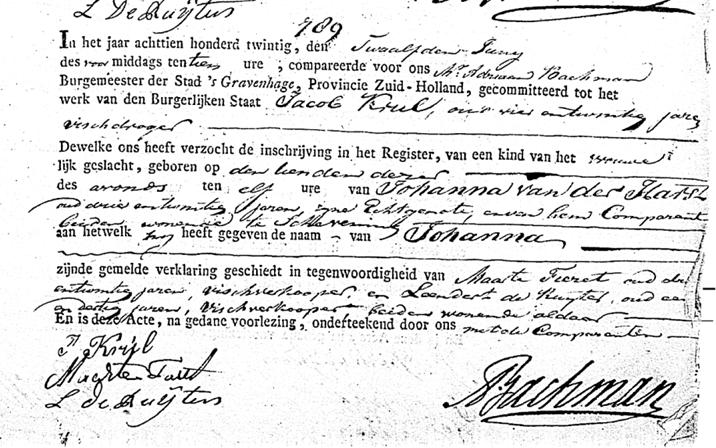 L De Ruÿter
789
In het jaar achttien honderd twintig, den Twaalfden Juny
des voor middags ten tien ure, compareerde voor ons Mr. Adriaan Bachman
Burgemeester der Stad 's Gravenhage, Provincie Zuid-Holland, gecommitteerd tot het
werk van den Burgerlijken Staat Jacob Krul, oud vier entwintig jaren
vischdrager
Dewelke ons heeft verzocht de inschrijving in het Register, van een kind van het vrouwe
lijk geslacht, geboren op den tienden dezer
des avonds ten elf ure van Johanna van der Harst
oud drie entwintig jaren, zyne Echtgenote, en van hem Comparant
beiden wonende te Scheveningen
aan hetwelk hy heeft gegeven de naam van Johanna
zijnde gemelde verklaring geschiedt in tegenwoordigheid van Maarte oud drie
entwintig jaren, vischverkooper en Leendert de Ruyter, oud een
en dertig jaren, vischverkooper beiden wonende aldaar
En is deze Acte, na gedane voorlezing, onderteekend door ons met de Comparanten
Krÿl
Maerten
L De Ruÿter
ABachman